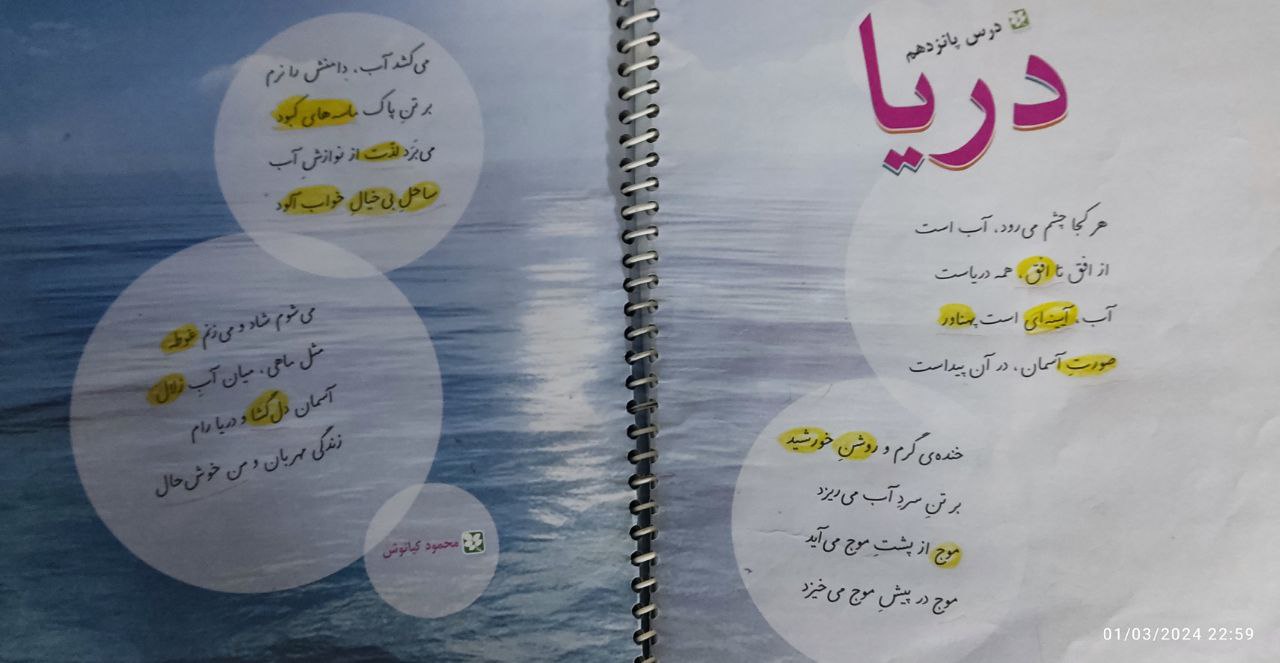 درس پانزدهم
دریا
هر کجا چشم می‌رود، آب است
از افق تا افق، همه دریاست
آب، آیینه‌ای است پهناور
صورتِ آسمان، در آن پیداست
خنده‌ی گرم و روشنِ خورشید
بر تنِ سردِ آب می‌ریزد
موج از پشتِ موج می‌آید
موج در پیشِ موج می‌خیزد
می‌کشد آب، دامنش را نرم
بر تنِ پاک ماسه‌های کبود
می‌بَرَد لذّت از نوازشِ آب
ساحلِ بی‌خیالِ خواب‌آلود
می‌شوم شاد و می‌زنم غوطه
مثل ماهی، میان آبِ زلال
آسمان دل‌گشا و دریا رام
زندگی مهربان و من خوش‌حال
محمود کیانوش
01/03/2024 22:59